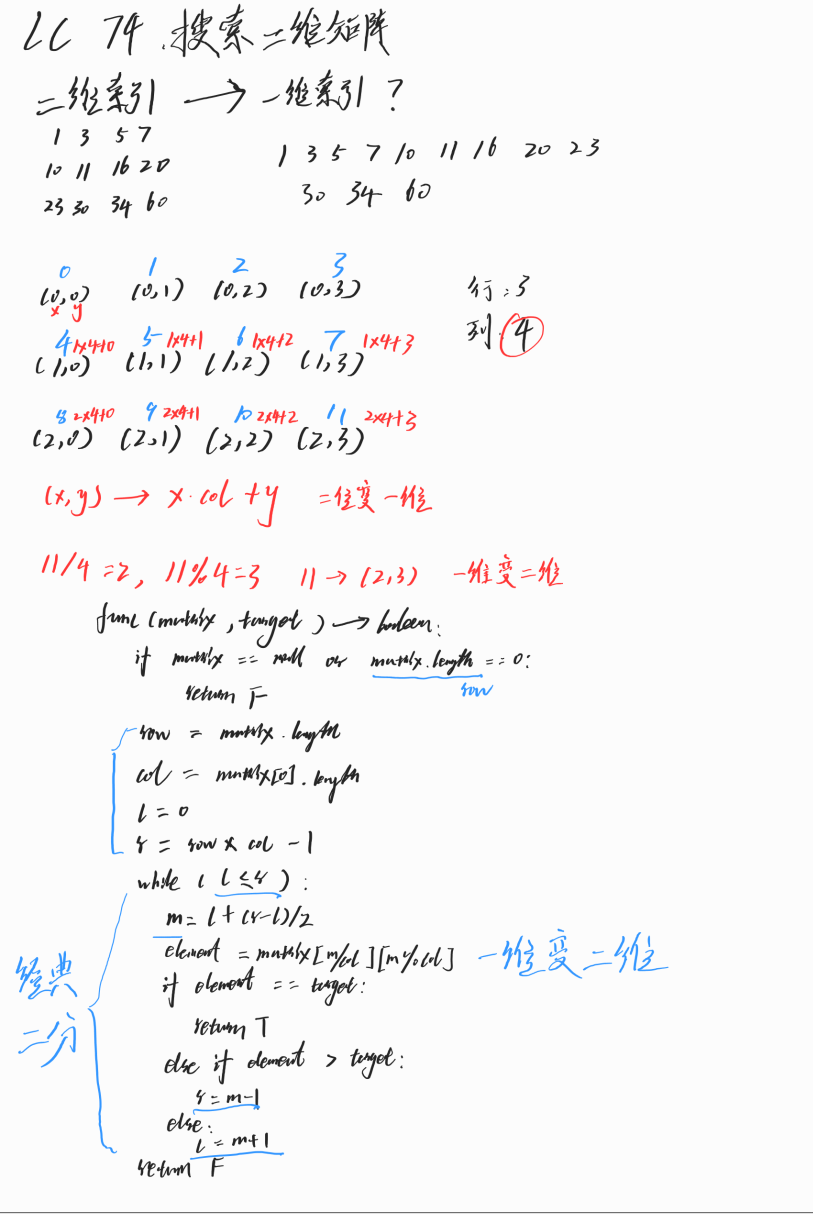 LC 74.搜索二维矩阵
二维索引 → 一维索引?
1 3 5 7
10 11 16 20
23 30 34 60
1 3 5 7 10 11 16 20 23
30 34 60
0 1 2 3
(0,0) (0,1) (0,2) (0,3)
x y
行:3
列:4
4 1x4+0 5 1x4+1 6 1x4+2 7 1x4+3
(1,0) (1,1) (1,2) (1,3)
8 2x4+0 9 2x4+1 10 2x4+2 11 2x4+3
(2,0) (2,1) (2,2) (2,3)
(x,y) → x·col+y 二维变一维
11/4=2, 11%4=3 11→(2,3) 一维变二维
func(matrix, target) → boolean:
if matrix == null or matrix.length == 0:
row
return F
row = matrix.length
col = matrix[0].length
l = 0
r = row x col - 1
while (l≤r):
m = l+(r-l)/2
element = matrix[m/col][m%col] 一维变二维
if element == target:
return T
else if element > target:
r = m-1
else:
l = m+1
return F
经典
二分